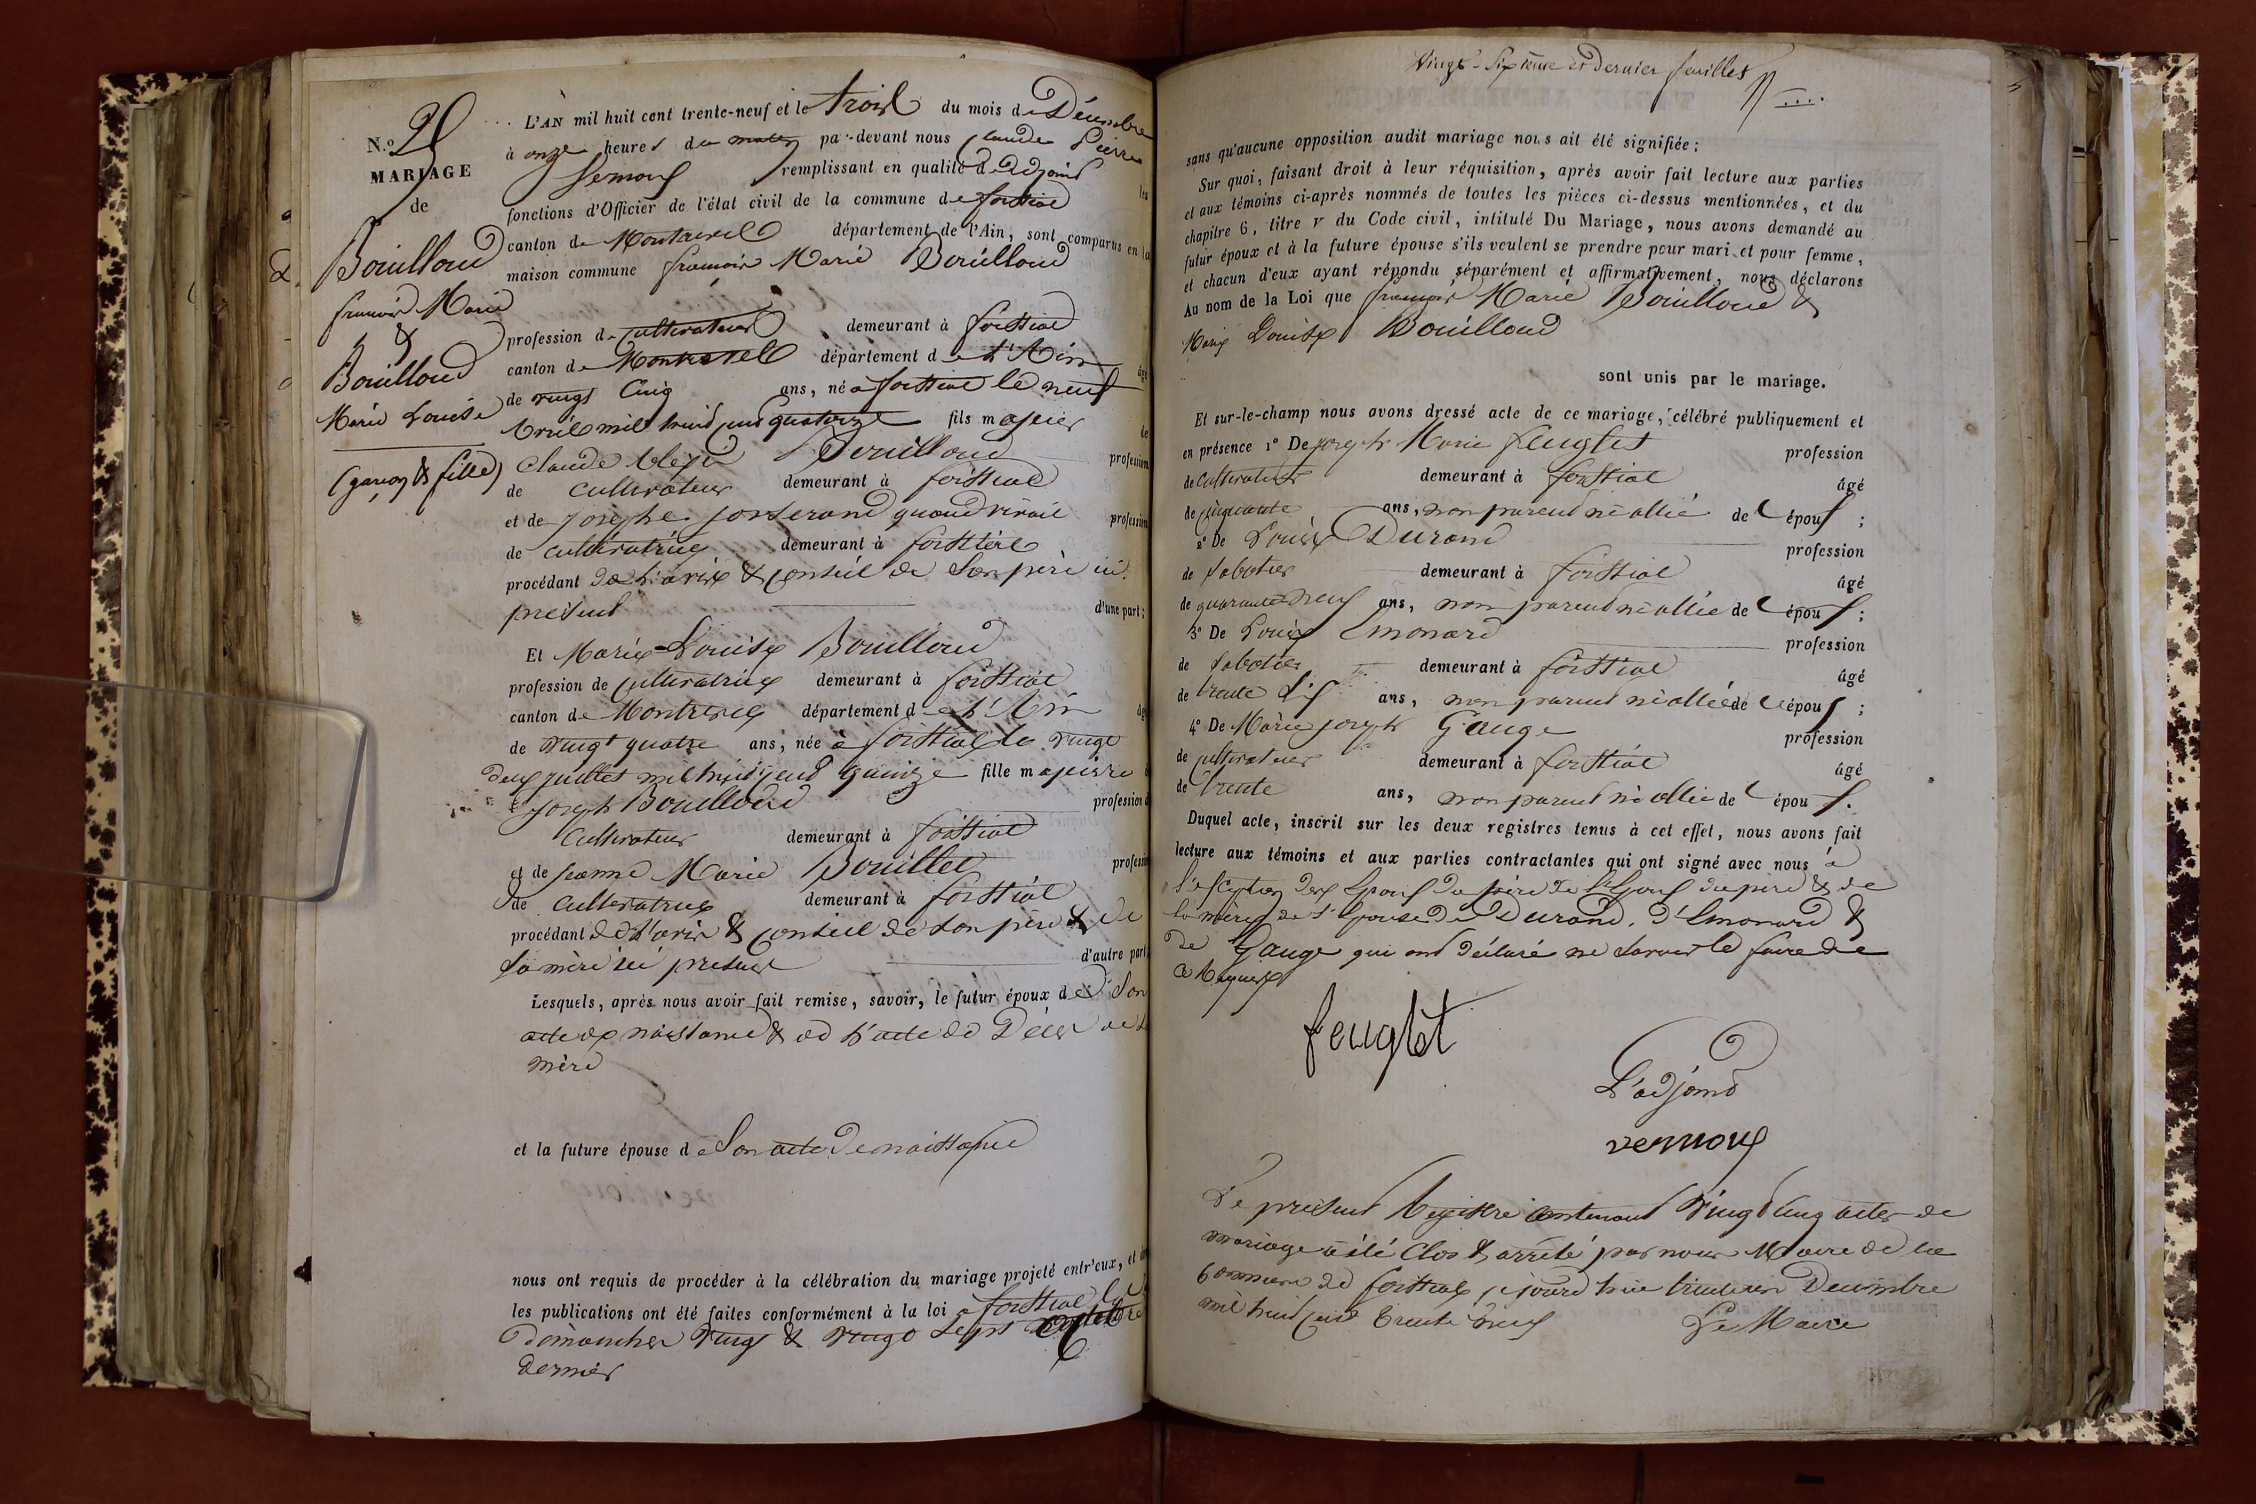 N.º 25
MARIAGE
de
Bouilloud
françois Marie
&
Bouilloud
Marie Louise
(garçon & fille)
L'AN mil huit cent trente-neuf et le trois du mois de Décembre
à onze heures du matin par-devant nous Claude Pierre
remplissant en qualité d'adjoint les
fonctions d'Officier de l'état civil de la commune de
canton de Montrevel département de l'Ain, sont comparus en la
maison commune françois Marie Bouilloud
profession de cultivateur demeurant à
canton de Montrevel département de l'Ain âgé
de vingt cinq ans, né à le neuf
avril mil huit cent quatorze fils majeur de
Claude Bouilloud profession
de cultivateur demeurant à
et de Josephe Josserand quand vivait profession
de cultivatrice demeurant à
procédant de l'avis & conseil de son père ici
présent d'une part;
Et Marie Louise Bouilloud
profession de cultivatrice demeurant à
canton de Montrevel département de l'Ain âgée
de vingt quatre ans, née à le vingt
deux juillet mil huit cent quinze fille majeure d
e Joseph Bouilloud profession d
cultivateur demeurant à
et de Jeanne Marie Bouillet profession
de cultivatrice demeurant à
procédant de l'avis & conseil de son père & de
sa mère ici présent d'autre part;
Lesquels, après nous avoir fait remise, savoir, le futur époux de son
acte de naissance & de l'acte de décès de sa
mère
et la future épouse de son acte de naissance
nous ont requis de procéder à la célébration du mariage projeté entr'eux, et dont
les publications ont été faites conformément à la loi à les
dimanches vingt & vingt sept octobre
dernier
Vingt-sixième et dernier feuillet
sans qu'aucune opposition audit mariage nous ait été signifiée;
Sur quoi, faisant droit à leur réquisition, après avoir fait lecture aux parties
et aux témoins ci-après nommés de toutes les pièces ci-dessus mentionnées, et du
chapitre 6, titre V du Code civil, intitulé Du Mariage, nous avons demandé au
futur époux et à la future épouse s'ils veulent se prendre pour mari et pour femme,
et chacun d'eux ayant répondu séparément et affirmativement, nous déclarons
Au nom de la Loi que françois Marie Bouilloud &
Marie Louise Bouilloud
sont unis par le mariage.
Et sur-le-champ nous avons dressé acte de ce mariage, célébré publiquement et
en présence 1º De joseph Marie feuglet profession
de cultivateur demeurant à âgé
de cinquante ans, non parent ni allié de l épou s;
2º De Louis Durand profession
de sabotier demeurant à âgé
de quarante neuf ans, non parent ni allié de l épou s;
3º De Louis Emonard profession
de sabotier demeurant à âgé
de trente six ans, non parent ni allié de l épou s;
4º De Marie joseph Gauge profession
de cultivateur demeurant à âgé
de trente ans, non parent ni allié de l épou s.
Duquel acte, inscrit sur les deux registres tenus à cet effet, nous avons fait
lecture aux témoins et aux parties contractantes qui ont signé avec nous à
l'exception des époux du père de l'époux du père & de
la mère de l'épouse de Durand, d'Emonard &
de Gauge qui ont déclaré ne savoir le faire de
ce requis
feuglet
L'adjoint
vernoux
Le présent registre contenant vingt cinq actes de
mariage a été clos & arrêté par nous Maire de la
commune de ce jourd'hui trente un Décembre
mil huit cent trente neuf
Le Maire